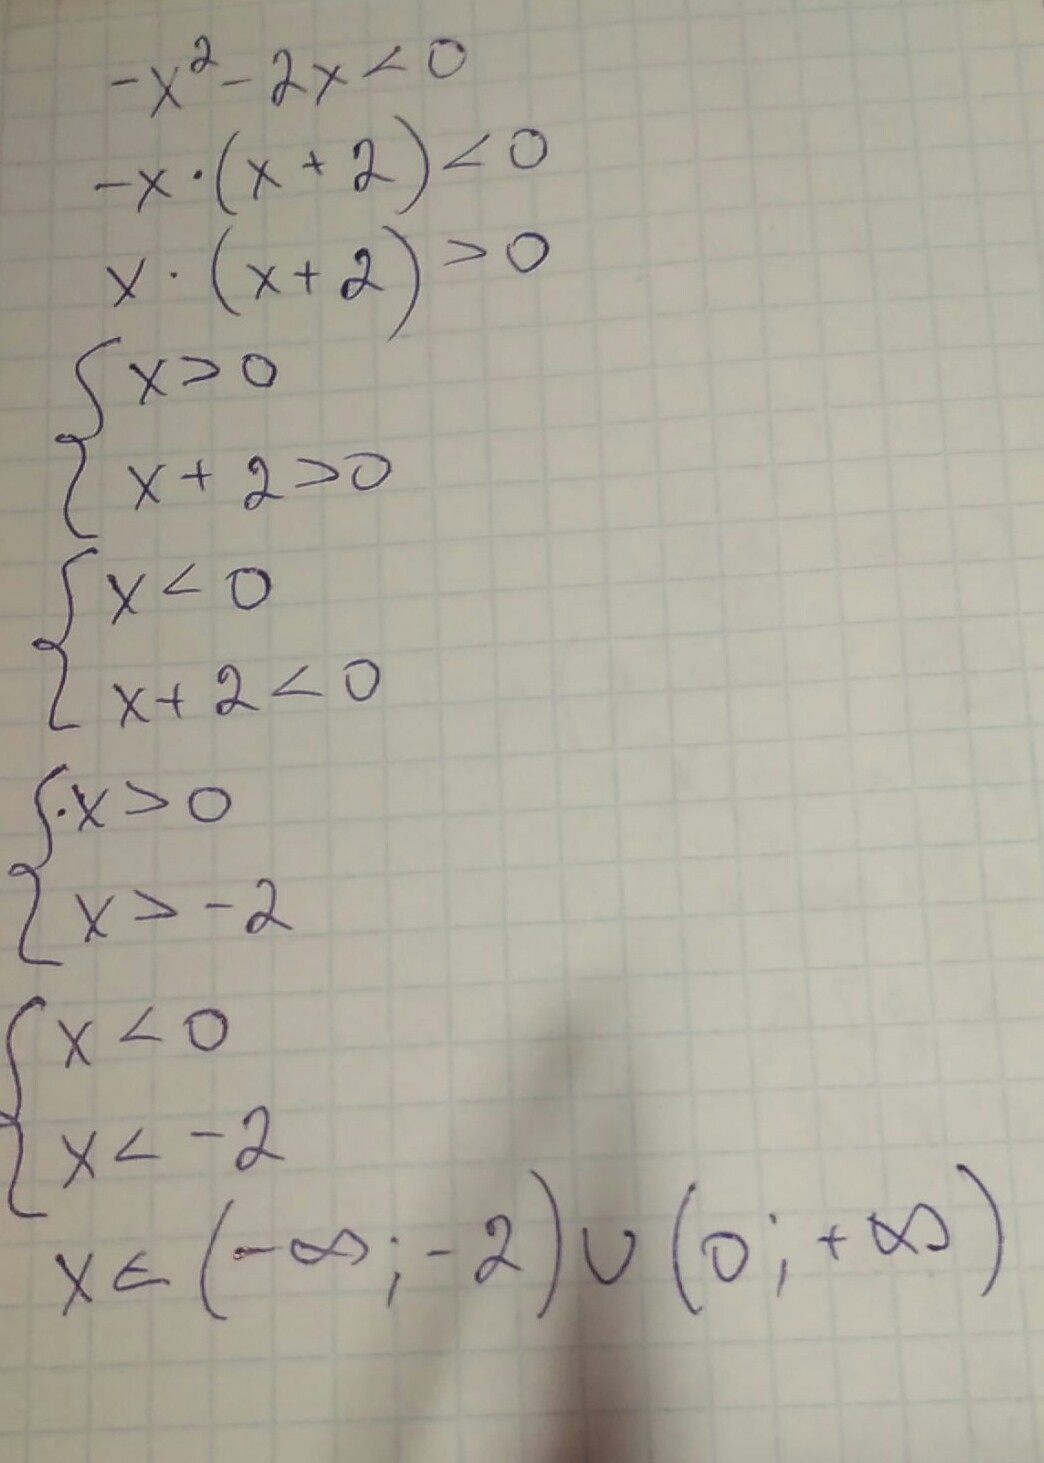 -x² - 2x < 0
-x · (x + 2) < 0
x · (x + 2) > 0
{ x > 0
x + 2 > 0
{ x < 0
x + 2 < 0
{ x > 0
x > -2
{ x < 0
x < -2
x ∈ (-∞; -2) ∪ (0; +∞)